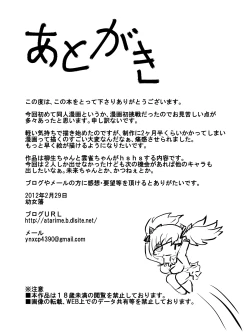 あとがき
この度は、この本をとって下さりありがとうございます。
今回初めて同人漫画というか、漫画初挑戦だったのでお見苦しい点が
多々あったと思います。申し訳ないです。
軽い気持ちで描き始めたのですが、制作に2ヶ月半くらいかかってしまい
漫画って描くのすごい大変なんだなぁ、痛感させられました。
もっと早く絵が描けるようになりたいです。
作品は柳生ちゃんと雲雀ちゃんがｈｓｈｓする内容です。
今回は2人しか出せなかったけども次の機会があれば他のキャラも
出したいなぁ。未来ちゃんとか、かつねぇとか。
ブログやメールの方に感想・要望等を頂けるとありがたいです。
2012年2月29日
幼女簿
ブログＵＲＬ
http://atarime.b.dlsite.net/
メール
ynxcp4390@gmail.com
※注意
■本作品は１８歳未満の閲覧を禁止しております。
■画像の転載、WEB上でのデータ共有等を禁止しております。